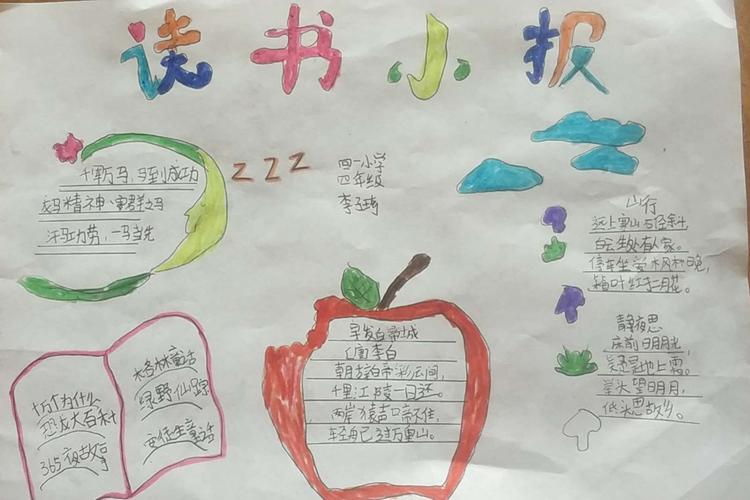 读书小报
千军万马,马到成功
龙马精神,害群之马
汗马功劳,一马当先
ZZZ
四一小学
四年级
李子琦
山行
远上寒山石径斜,
白云生处有人家。
停车坐爱枫林晚,
霜叶红于二月花。
静夜思
床前明月光,
疑是地上霜。
举头望明月,
低头思故乡。
早发白帝城
(唐)李白
朝辞白帝彩云间,
千里江陵一日还。
两岸猿声啼不住,
轻舟已过万重山。
十万个为什么
恐龙大百科
365夜故事
格林童话
绿野仙踪
安徒生童话